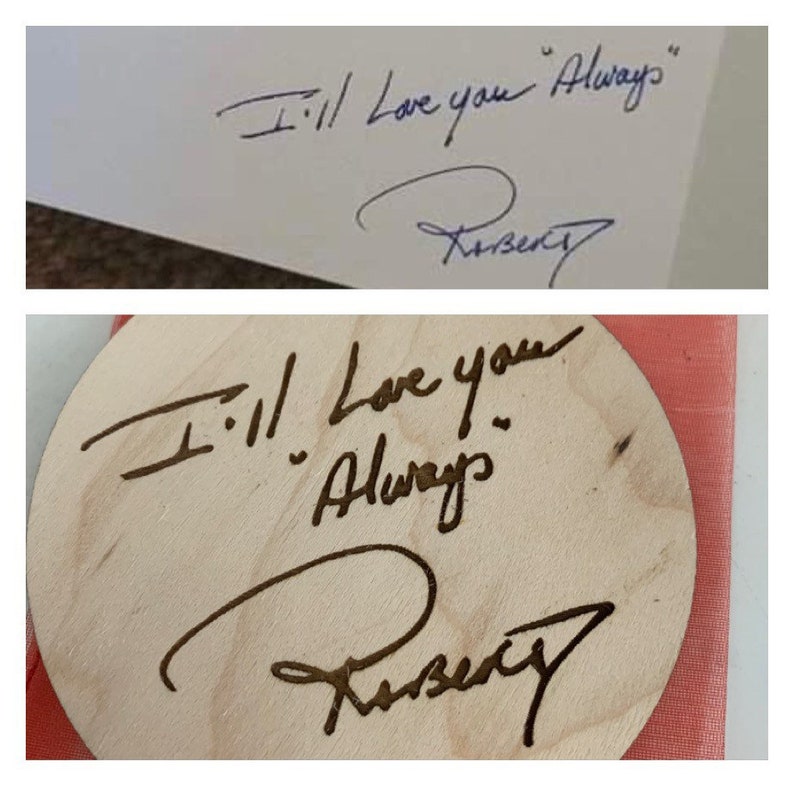 I'll Love you "Always"
Robert
I'll Love you
"Always"
Robert